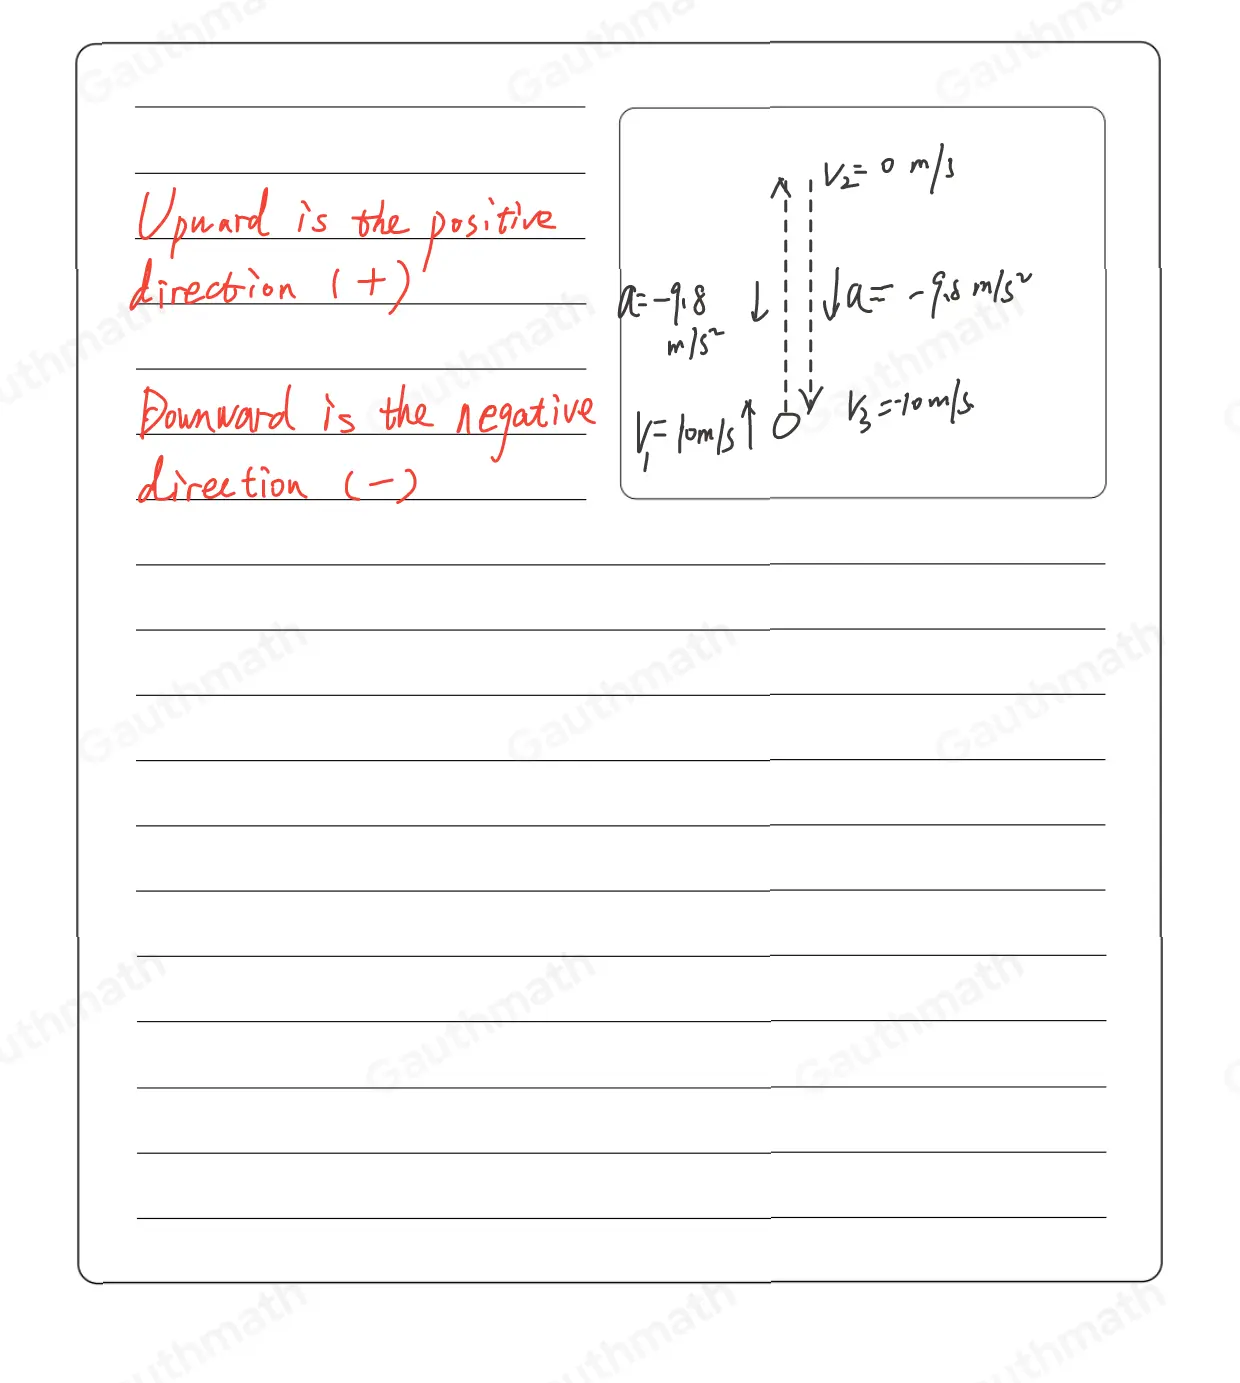 Upward is the positive
direction (+)
Downward is the negative
direction (-)
V₂= 0 m/s
a= -9.8
m/s²
a= -9.8 m/s²
V₁= 10m/s
V₃=-10m/s
Gauthmath